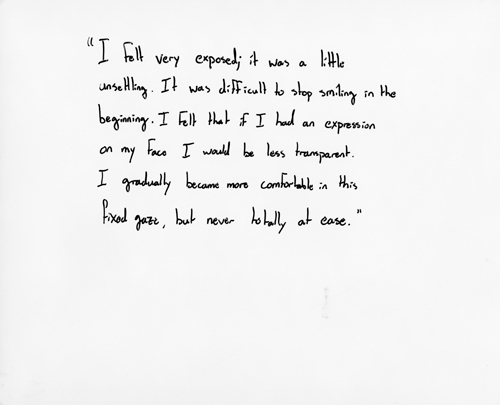 "I felt very exposed; it was a little
unsettling. It was difficult to stop smiling in the
beginning. I felt that if I had an expression
on my face I would be less transparent.
I gradually became more comfortable in this
fixed gaze, but never totally at ease."